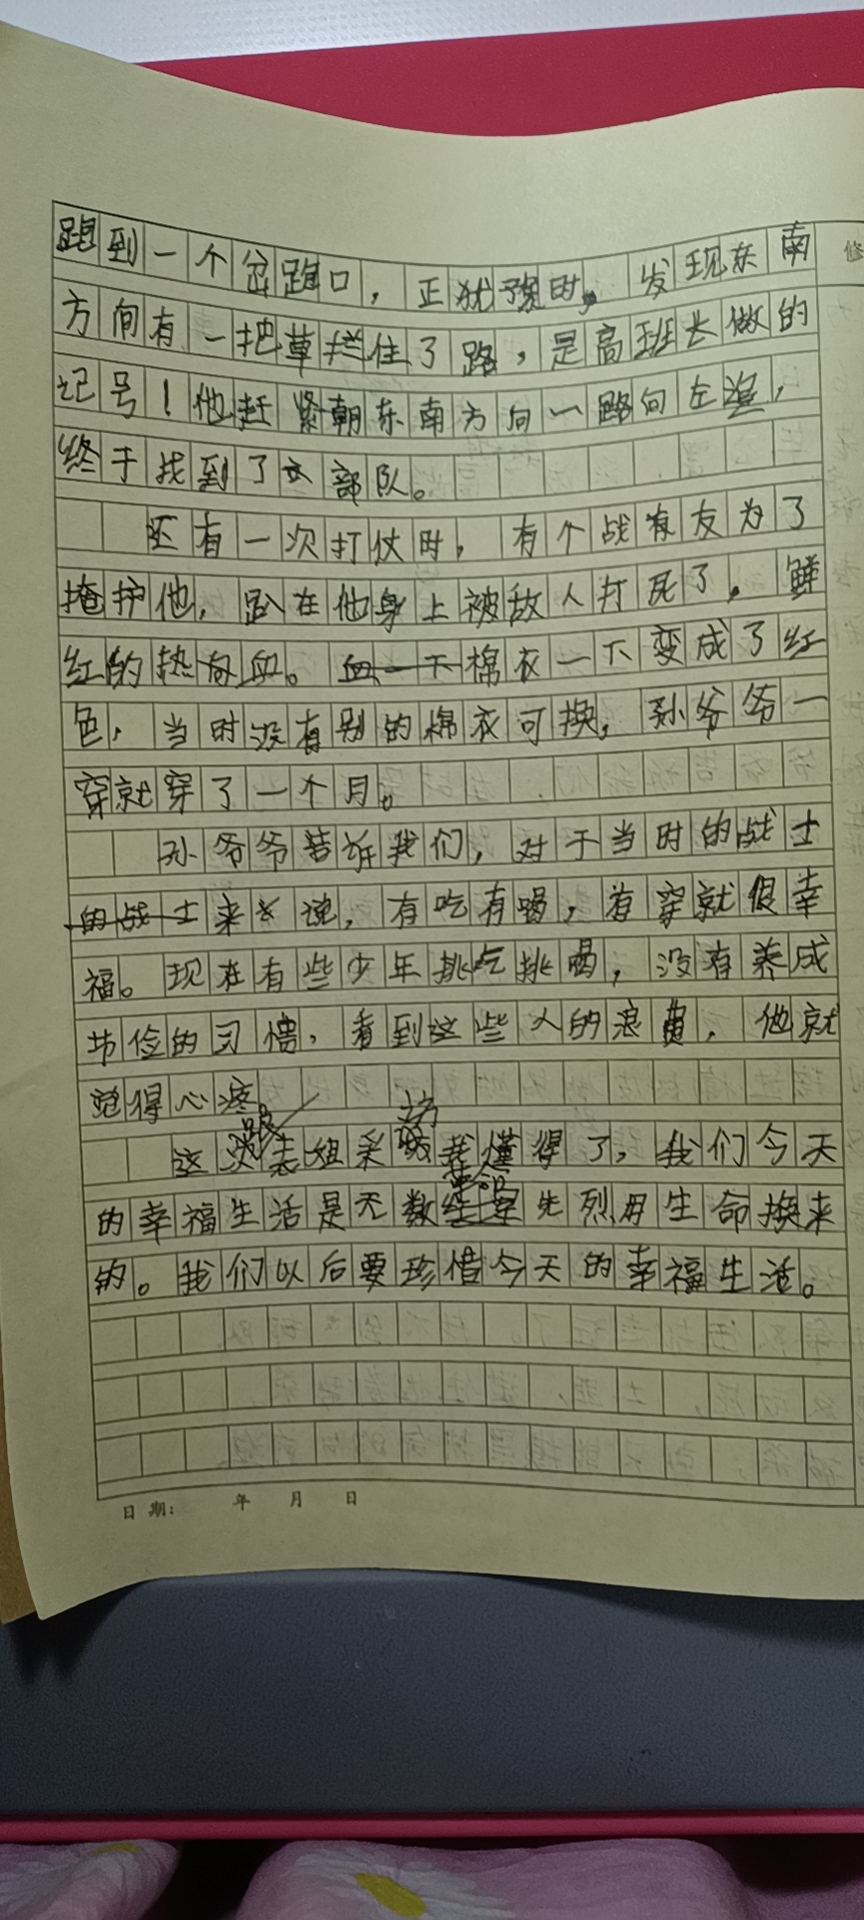 跑到一个岔路口，正犹豫时，发现东南
方向有一把草拦住了路，是高班长做的
记号！他赶紧朝东南方向一路向左
终于找到了大部队。
还有一次打仗时，有个战友为了
掩护他，趴在他身上被敌人打死了。鲜
红的热血。棉衣一下变成了红
色，当时没有别的棉衣可换，孙爷爷一
穿就穿了一个月。
孙爷爷告诉我们，对于当时的战士
来说，有吃有喝，有穿就很幸
福。现在有些少年挑吃挑喝，没有养成
节俭的习惯，看到这些人的浪费，他就
觉得心疼
这次跟表姐采访我懂得了，我们今天
的幸福生活是无数革命先烈用生命换来
的。我们以后要珍惜今天的幸福生活。
日期： 年 月 日
修